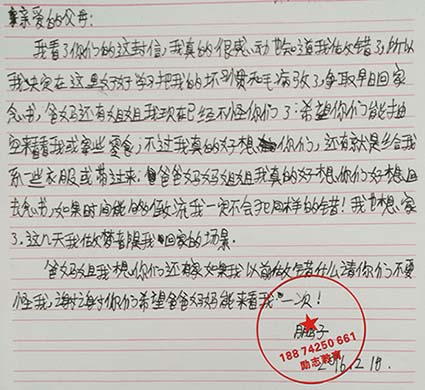 亲爱的父母：
我看了你们的这封信，我真的很感动也知道我做错了，所以
我决定在这里好好学习把我的坏习惯和毛病改了，争取早日回家
念书，爸妈还有姐姐我现在已经不怪你们了；希望你们能抽
空来看看我或拿些零食，不过我真的好想你们，还有就是给我
一些衣服或带过来。爸爸妈妈姐姐我真的好想你们好想回
去念书，如果时间能够倒流我一定不会犯同样的错！我也想家
了。这几天我做梦都是我回家的场景。
爸妈姐我想你们还有家如果我以前做错什么请你们不要
怪我，谢谢你们希望爸爸妈妈能来看我一次！
188 74250 661
励志教育
2016.12.18